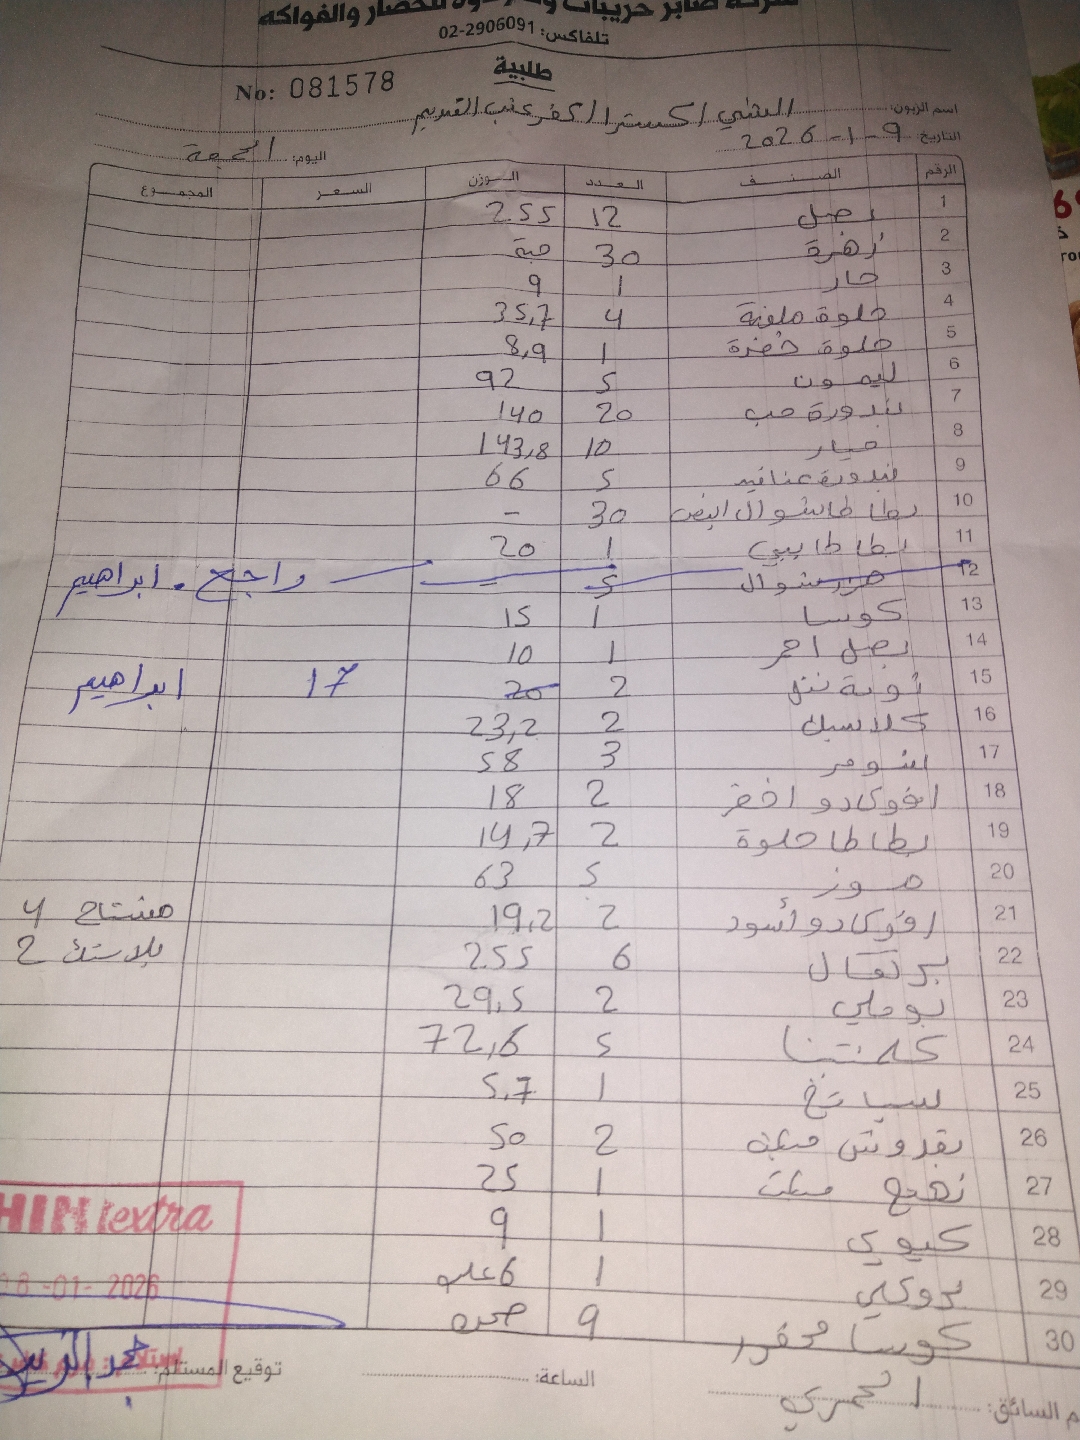 شركة صابر حريبات وعمر دوه للخضار والفواكه
تلفاكس: 02-2906091
طلبية
No: 081578
اسم الزبون: الشني اكسترا / كفر عقب القديم
التاريخ: 9-1-2026 اليوم: الجمعة
الرقم الصنف العدد الوزن السعر المجموع
1 بصل 12 255
2 زهرة 30 حبة
3 حار 1 9
4 حلوة ملونة 4 35,7
5 حلوة خضرة 1 8,9
6 ليمون 5 92
7 بندورة حب 20 140
8 خيار 10 143,8
9 بندورة عناقيد 5 66
10 بطاطا شوال ابيض 30 -
11 بطاطا بيبي 1 20
12 شوال 5 راجع . ابراهيم
13 كوسا 1 15
14 بصل احمر 1 10
15 2 20 17 ابراهيم
16 2 23,2
17 3 58
18 افوكادو اخضر 2 18
19 بطاطا حلوة 2 14,7
20 موز 5 63
21 افوكادو أسود 2 19,2 مشتاح 4
22 برتقال 6 255 بلاستك 2
23 بوملي 2 29,5
24 كلمنتينا 5 72,6
25 سبانخ 1 5,7
26 بقدونس 2 50
27 نعنع 1 25
28 كيوي 1 9
29 بروكلي 1 6 علب
30 كوسا محفور 9 صحن
HIN extra
08-01-2026
م السائق: العمري الساعة: توقيع المستلم: